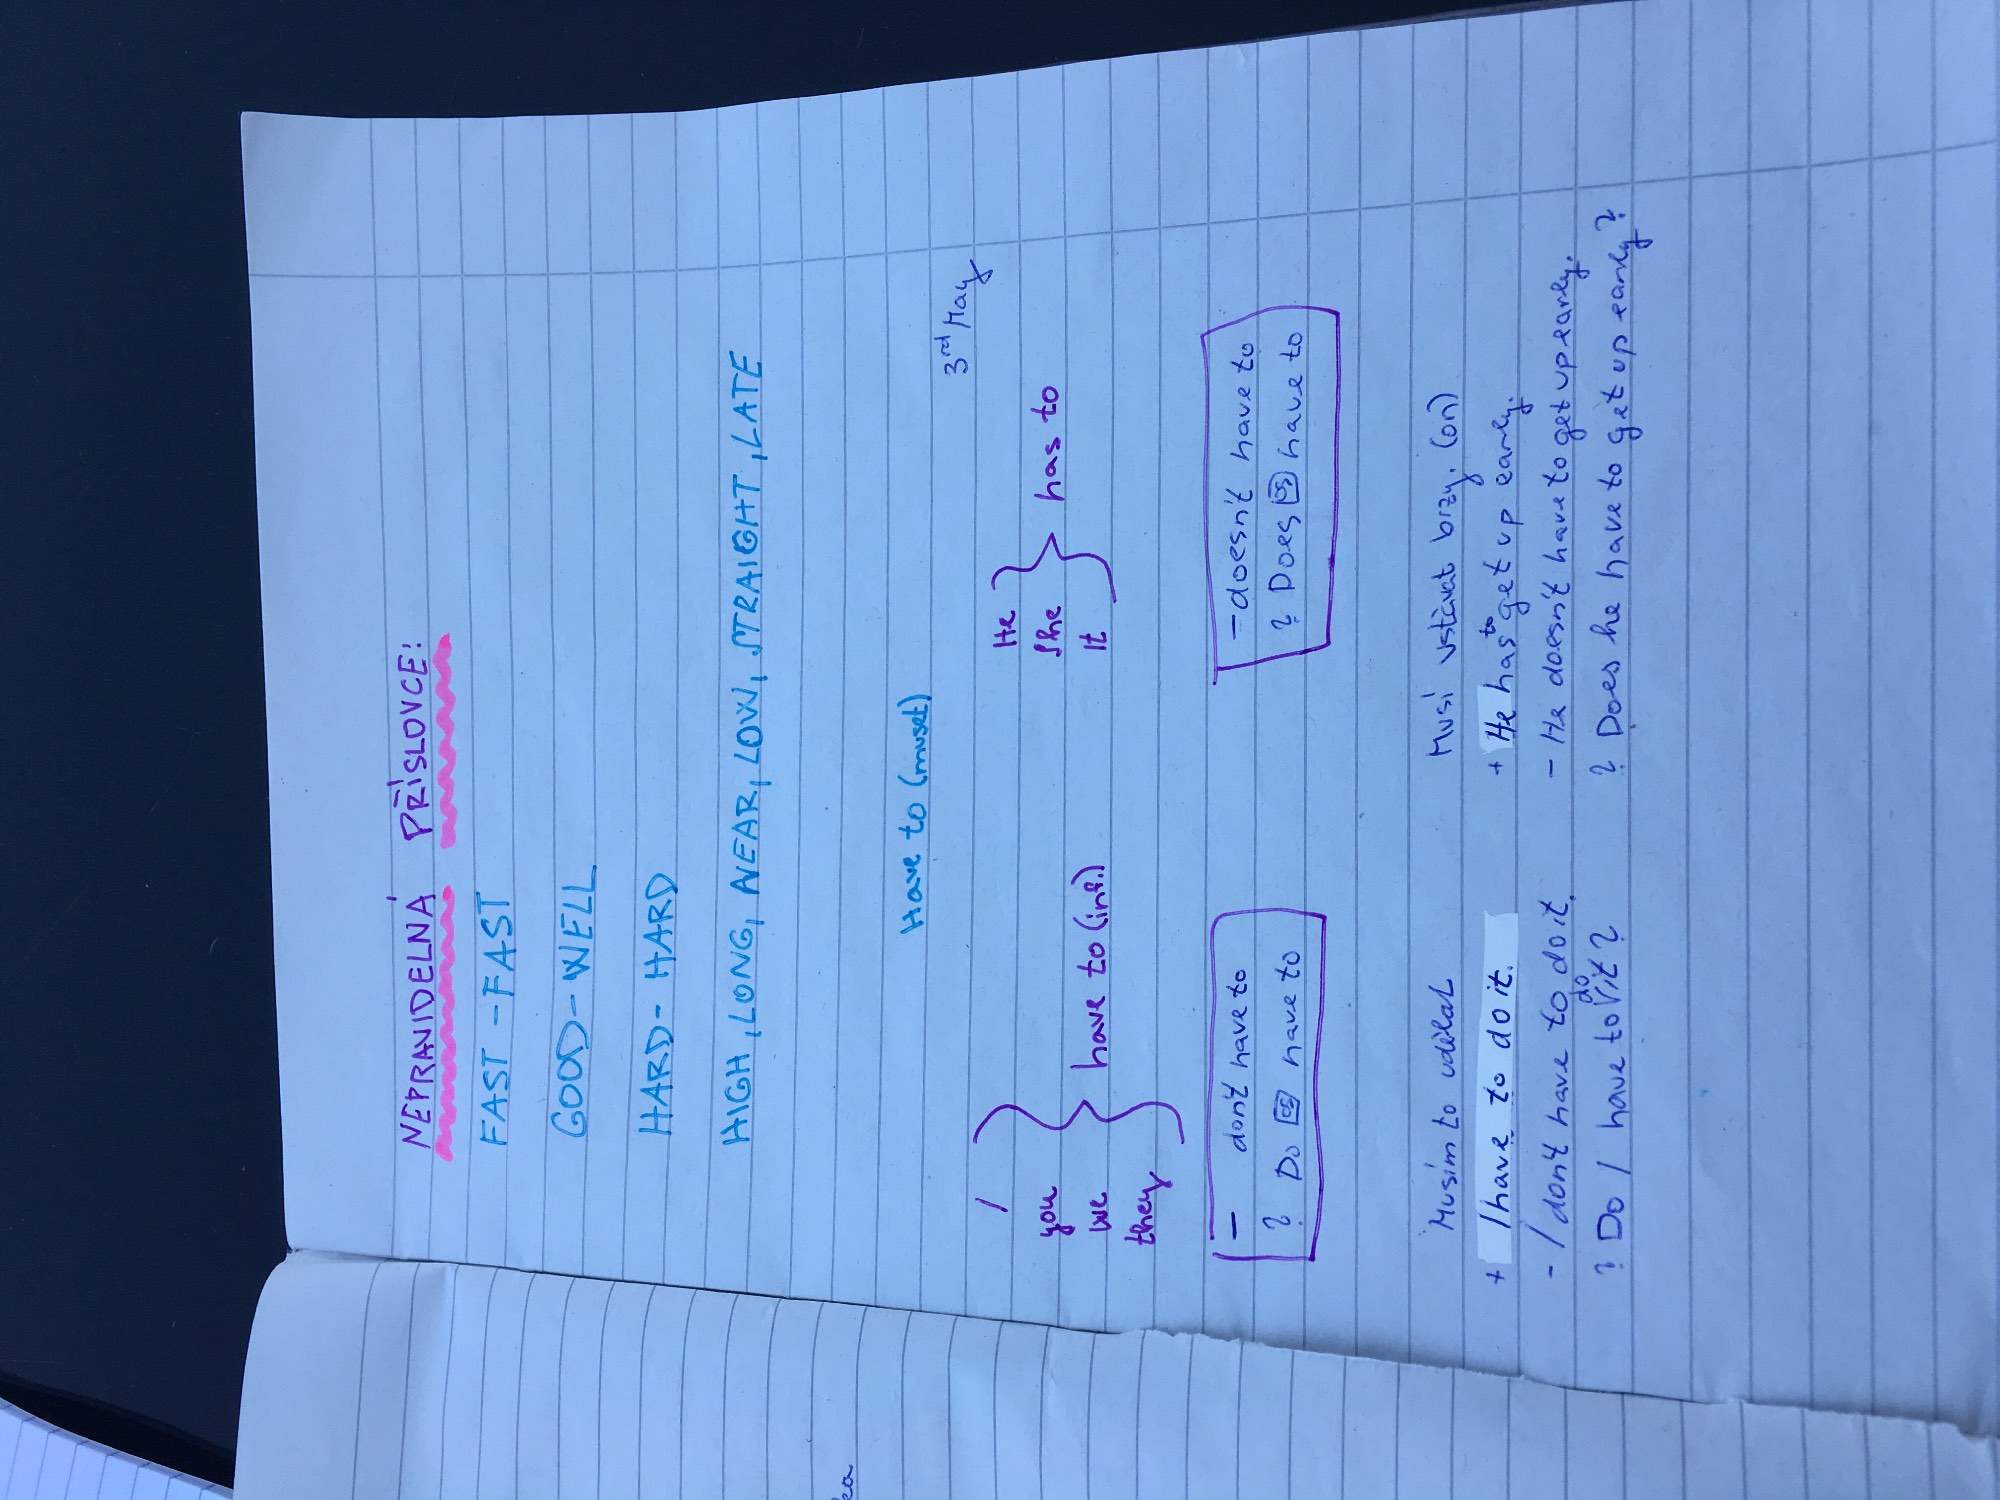 NEPRAVIDELNÁ PŘÍSLOVCE:
FAST - FAST
GOOD - WELL
HARD - HARD
HIGH, LONG, NEAR, LOW, STRAIGHT, LATE
Have to (muset)
3rd May
I
you
we
they
have to (inf.)
He
She
It
has to
- don't have to
? Do os have to
- doesn't have to
? Does os have to
Musím to udělat
+ I have to do it.
- I don't have to do it.
? Do I have to do it?
Musí vstávat brzy. (on)
+ He has to get up early.
- He doesn't have to get up early.
? Does he have to get up early?